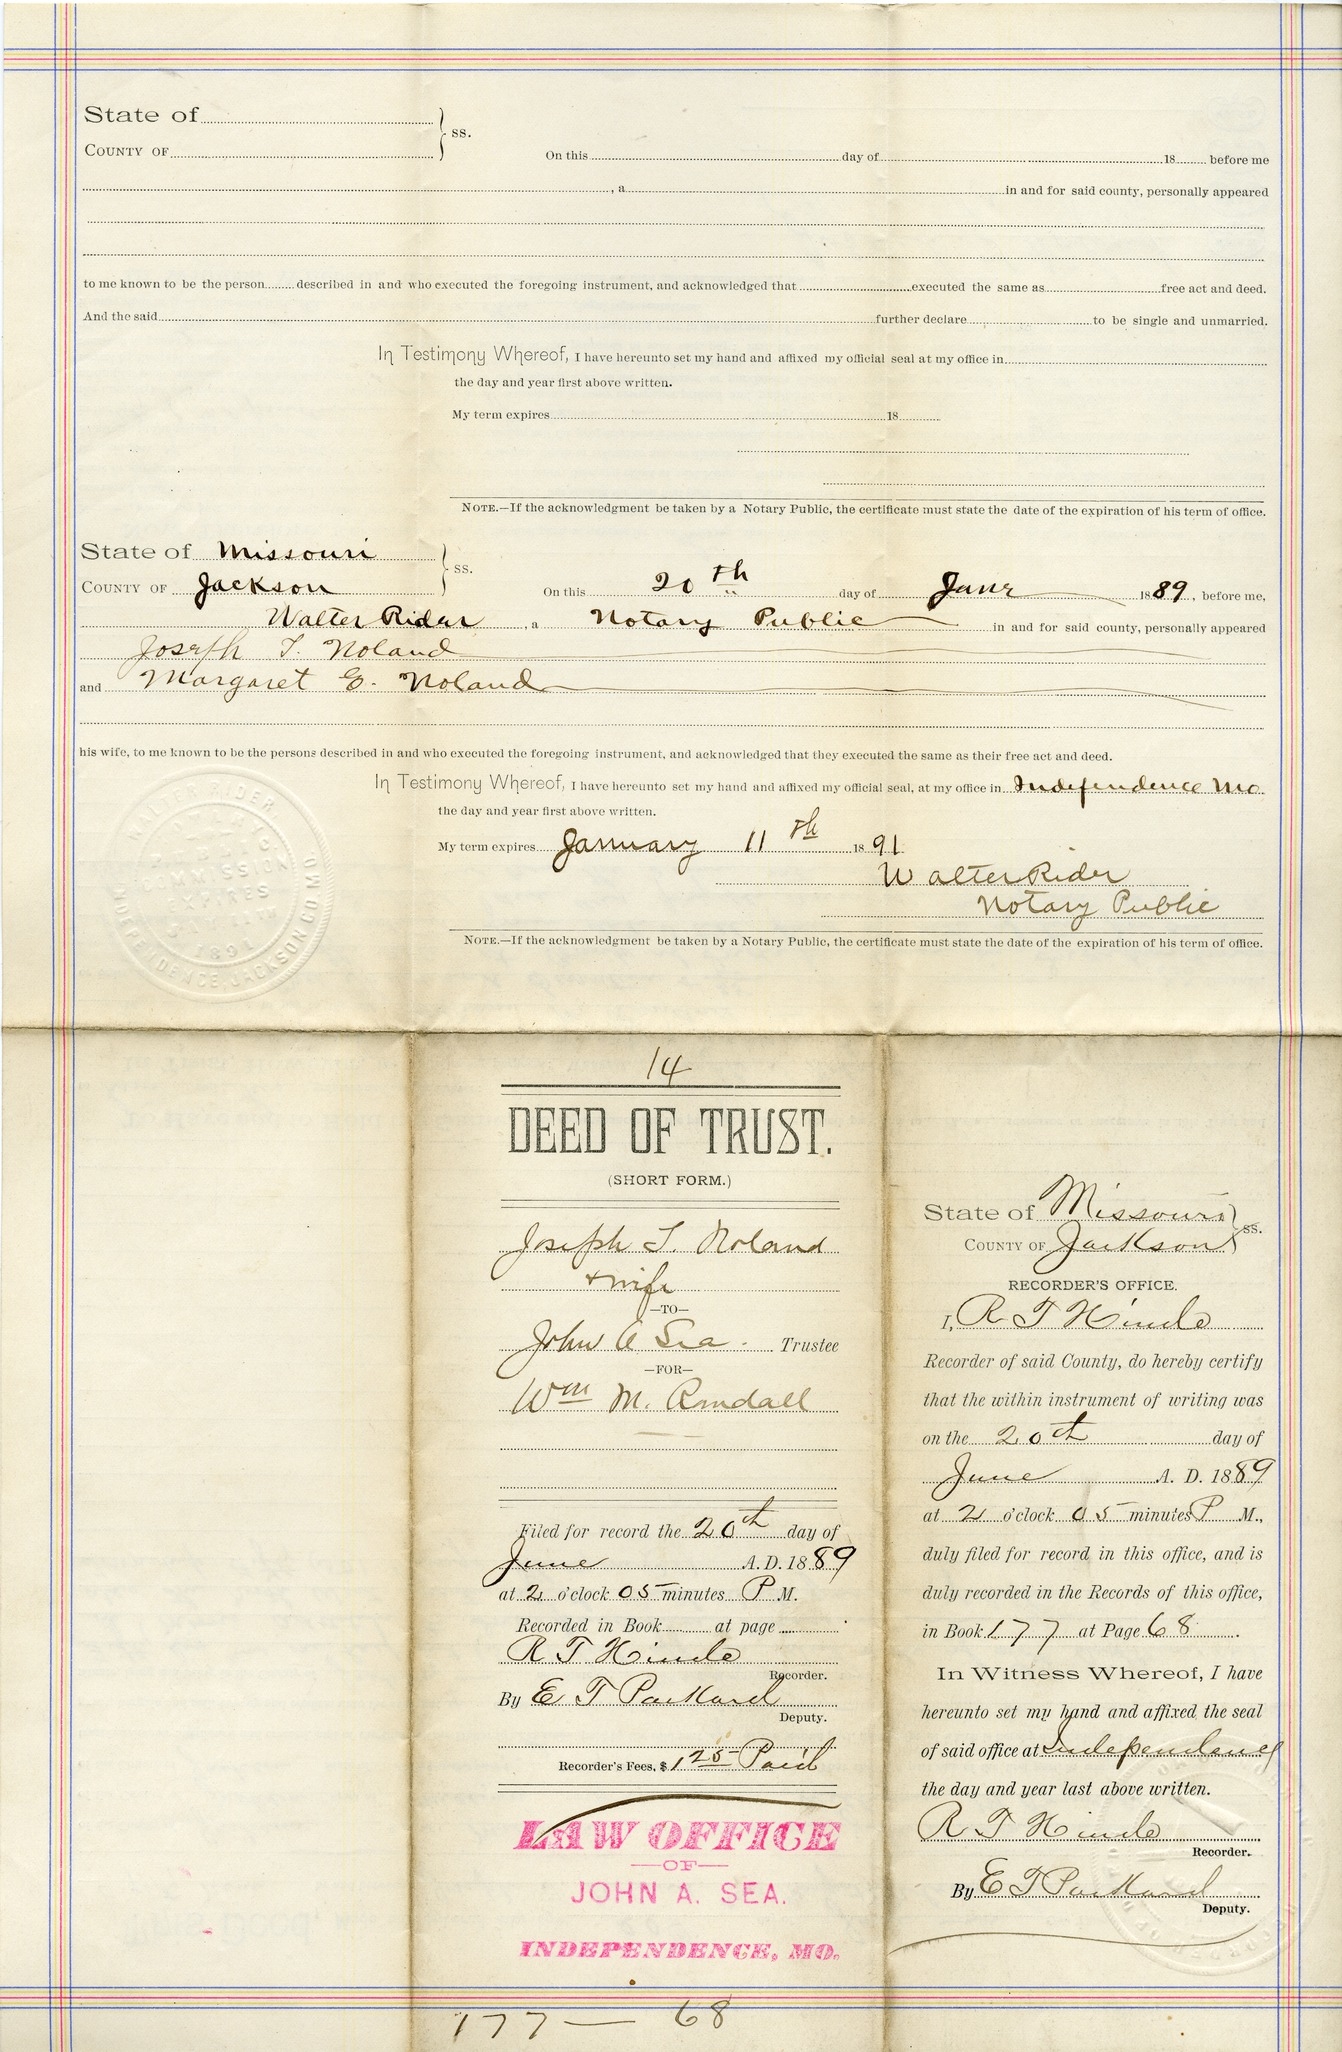 State of
County of } ss.
On this day of 18 before me
, a in and for said county, personally appeared
to me known to be the person described in and who executed the foregoing instrument, and acknowledged that executed the same as free act and deed.
And the said further declare to be single and unmarried.
In Testimony Whereof, I have hereunto set my hand and affixed my official seal at my office in
the day and year first above written.
My term expires 18
Note.—If the acknowledgment be taken by a Notary Public, the certificate must state the date of the expiration of his term of office.
State of Missouri
County of Jackson } ss.
On this 20th day of June 1889, before me,
Walter Rider , a Notary Public in and for said county, personally appeared
Joseph T. Noland
and Margaret E. Noland
his wife, to me known to be the persons described in and who executed the foregoing instrument, and acknowledged that they executed the same as their free act and deed.
In Testimony Whereof, I have hereunto set my hand and affixed my official seal, at my office in Independence Mo
the day and year first above written.
My term expires January 11th 1891
Walter Rider
Notary Public
Note.—If the acknowledgment be taken by a Notary Public, the certificate must state the date of the expiration of his term of office.
WALTER RIDER
COMMISSION
EXPIRES
1891
INDEPENDENCE, JACKSON CO. MO
14
DEED OF TRUST.
(SHORT FORM.)
Joseph T. Noland
& wife
—TO—
John A Sea Trustee
—FOR—
Wm M. Randall
Filed for record the 20th day of
June A.D. 1889
at 2 o'clock 05 minutes P M.
Recorded in Book at page
R T Hinde
Recorder.
By E T Packard
Deputy.
Recorder's Fees, $ 1 25 Paid
LAW OFFICE
—OF—
JOHN A. SEA.
INDEPENDENCE, MO.
177 — 68
State of Missouri
County of Jackson } ss.
RECORDER'S OFFICE.
I, R T Hinde
Recorder of said County, do hereby certify
that the within instrument of writing was
on the 20th day of
June A. D. 1889
at 2 o'clock 05 minutes P M.,
duly filed for record in this office, and is
duly recorded in the Records of this office,
in Book 177 at Page 68.
In Witness Whereof, I have
hereunto set my hand and affixed the seal
of said office at Independence
the day and year last above written.
R T Hinde
Recorder.
By E T Packard
Deputy.